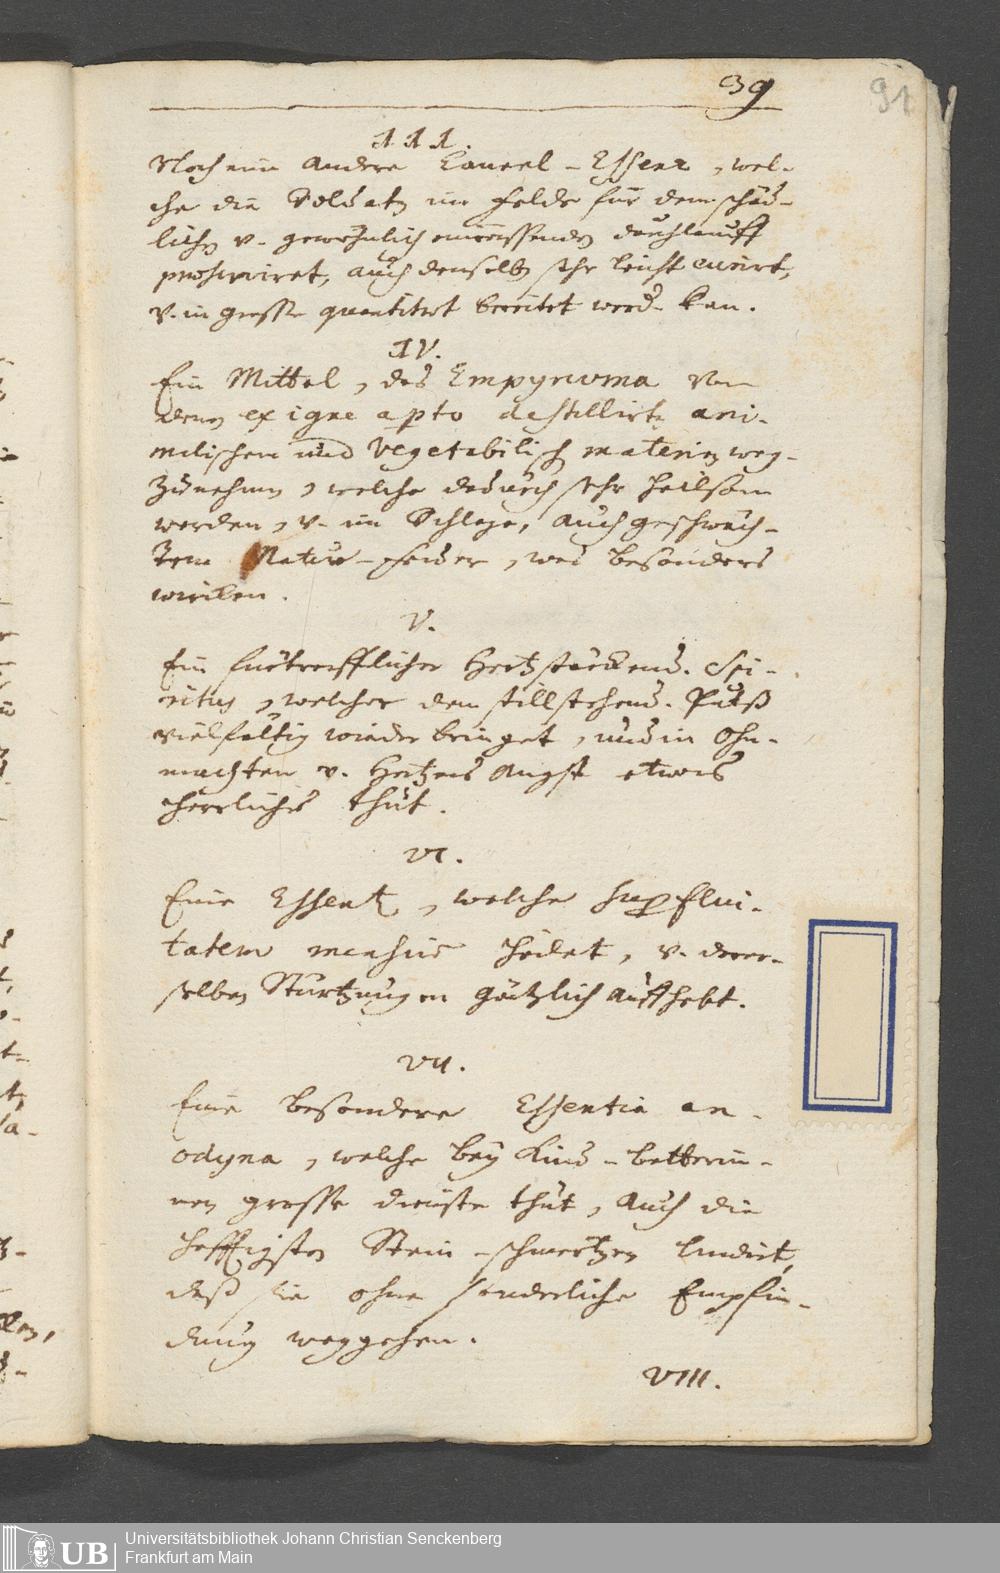 39
91
III.
Noch eine andere Caneel-Essenz, wel-
che die Soldatē im Felde für dem schäd-
lichē v. gewöhnlich einreissendē durchlauff
præserviret, auch denselbē sehr leicht curirt,
v. in grosse quantitæt bereitet werd. kan.
IV.
Ein Mittel, das Empyreuma von
denē ex igne aperto destillirtē ani-
malischen und vegetabilischē materiē weg-
zunehmen, welche dadurch sehr heilsam
werden, v. im Schlage, auch geschwäch-
tem Natur-feuer, was besonders
wircken.
V.
Ein fürtrefflicher Hertzstärckend. Spi-
ritus, welcher dem stillstehend. Pulß
vielfältig wieder bringet, und in Ohn-
machten v. Hertzens Angst etwas
herrliches thut.
VI.
Eine Essentz, welche superflui-
tatem mensium heilet, v. derer-
selben Sturtzungen gäntzlich auffhebt.
VII.
Eine besondere Essentia an-
odyna, welche bey Kind-betterin-
nen grosse dienste thut, auch die
hefftigstē Stein-schmertzen lindert,
daß sie ohne sonderliche Empfin-
dung weggehen.
VIII.
UB
Universitätsbibliothek Johann Christian Senckenberg
Frankfurt am Main